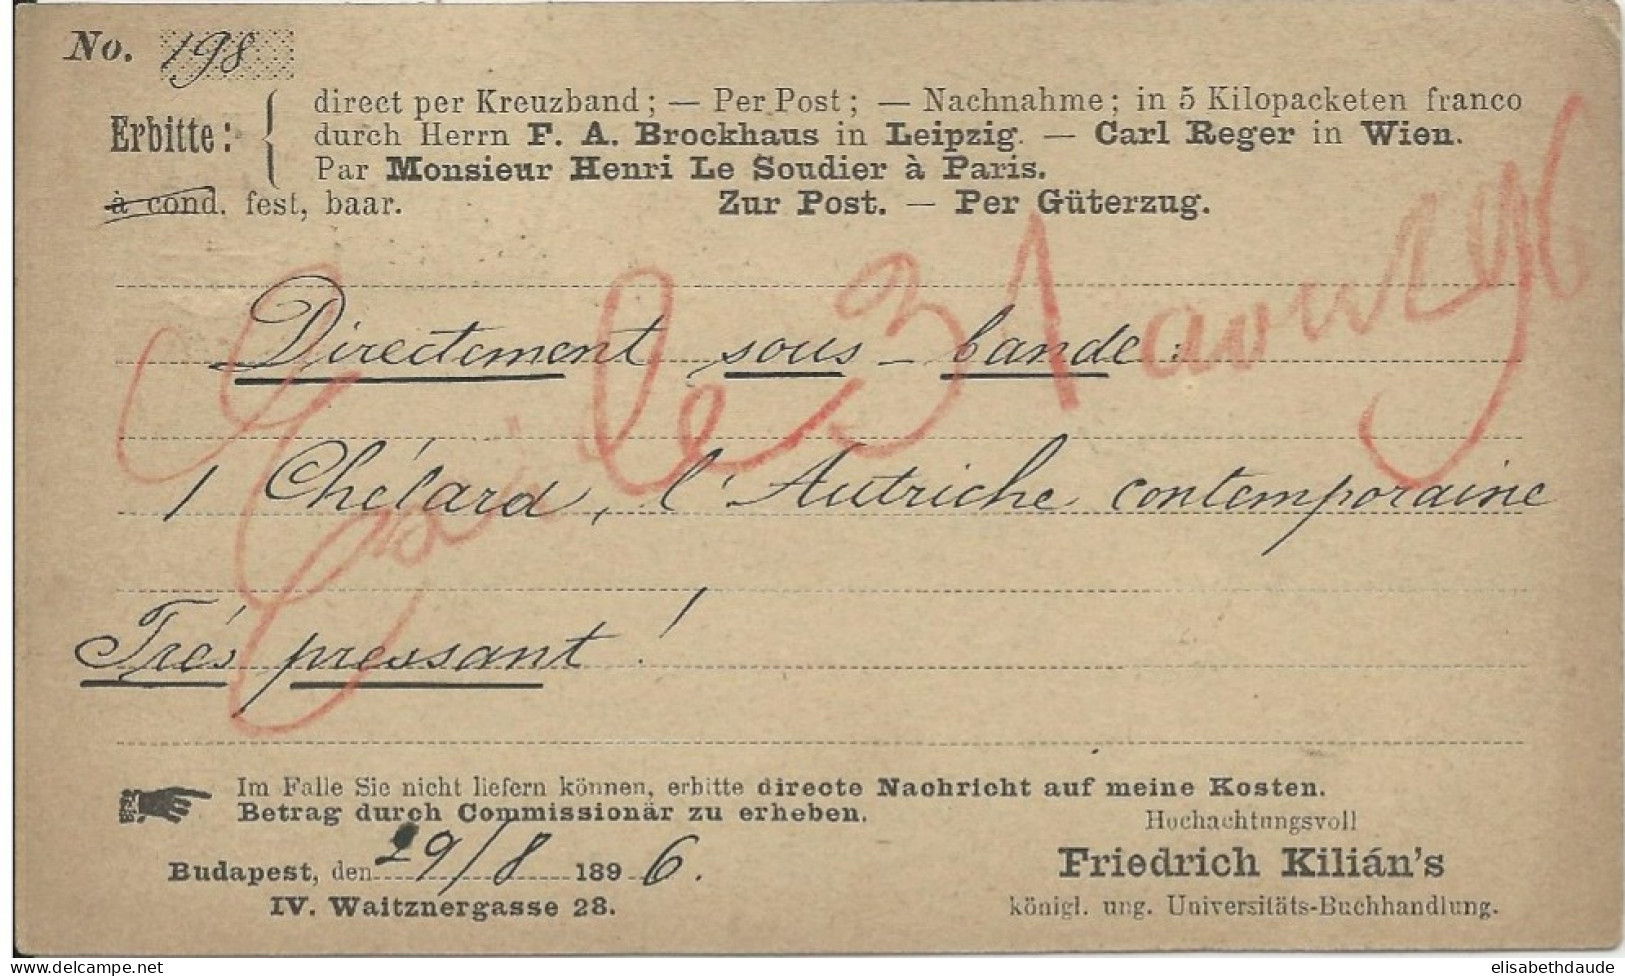 No. 198
Erbitte:
direct per Kreuzband; — Per Post; — Nachnahme; in 5 Kilopacketen franco
durch Herrn F. A. Brockhaus in Leipzig. — Carl Reger in Wien.
Par Monsieur Henri Le Soudier à Paris.
à cond. fest, baar. Zur Post. — Per Güterzug.
Directement sous-bande:
le 31 aout 96
1 Chélard, l'Autriche contemporaine
Très pressant!
Im Falle Sie nicht liefern können, erbitte directe Nachricht auf meine Kosten.
Betrag durch Commissionär zu erheben.
Hochachtungsvoll
Budapest, den 29/8 1896.
Friedrich Kilián's
IV. Waitznergasse 28.
königl. ung. Universitäts-Buchhandlung.
delcampe.net
elisabethdaude